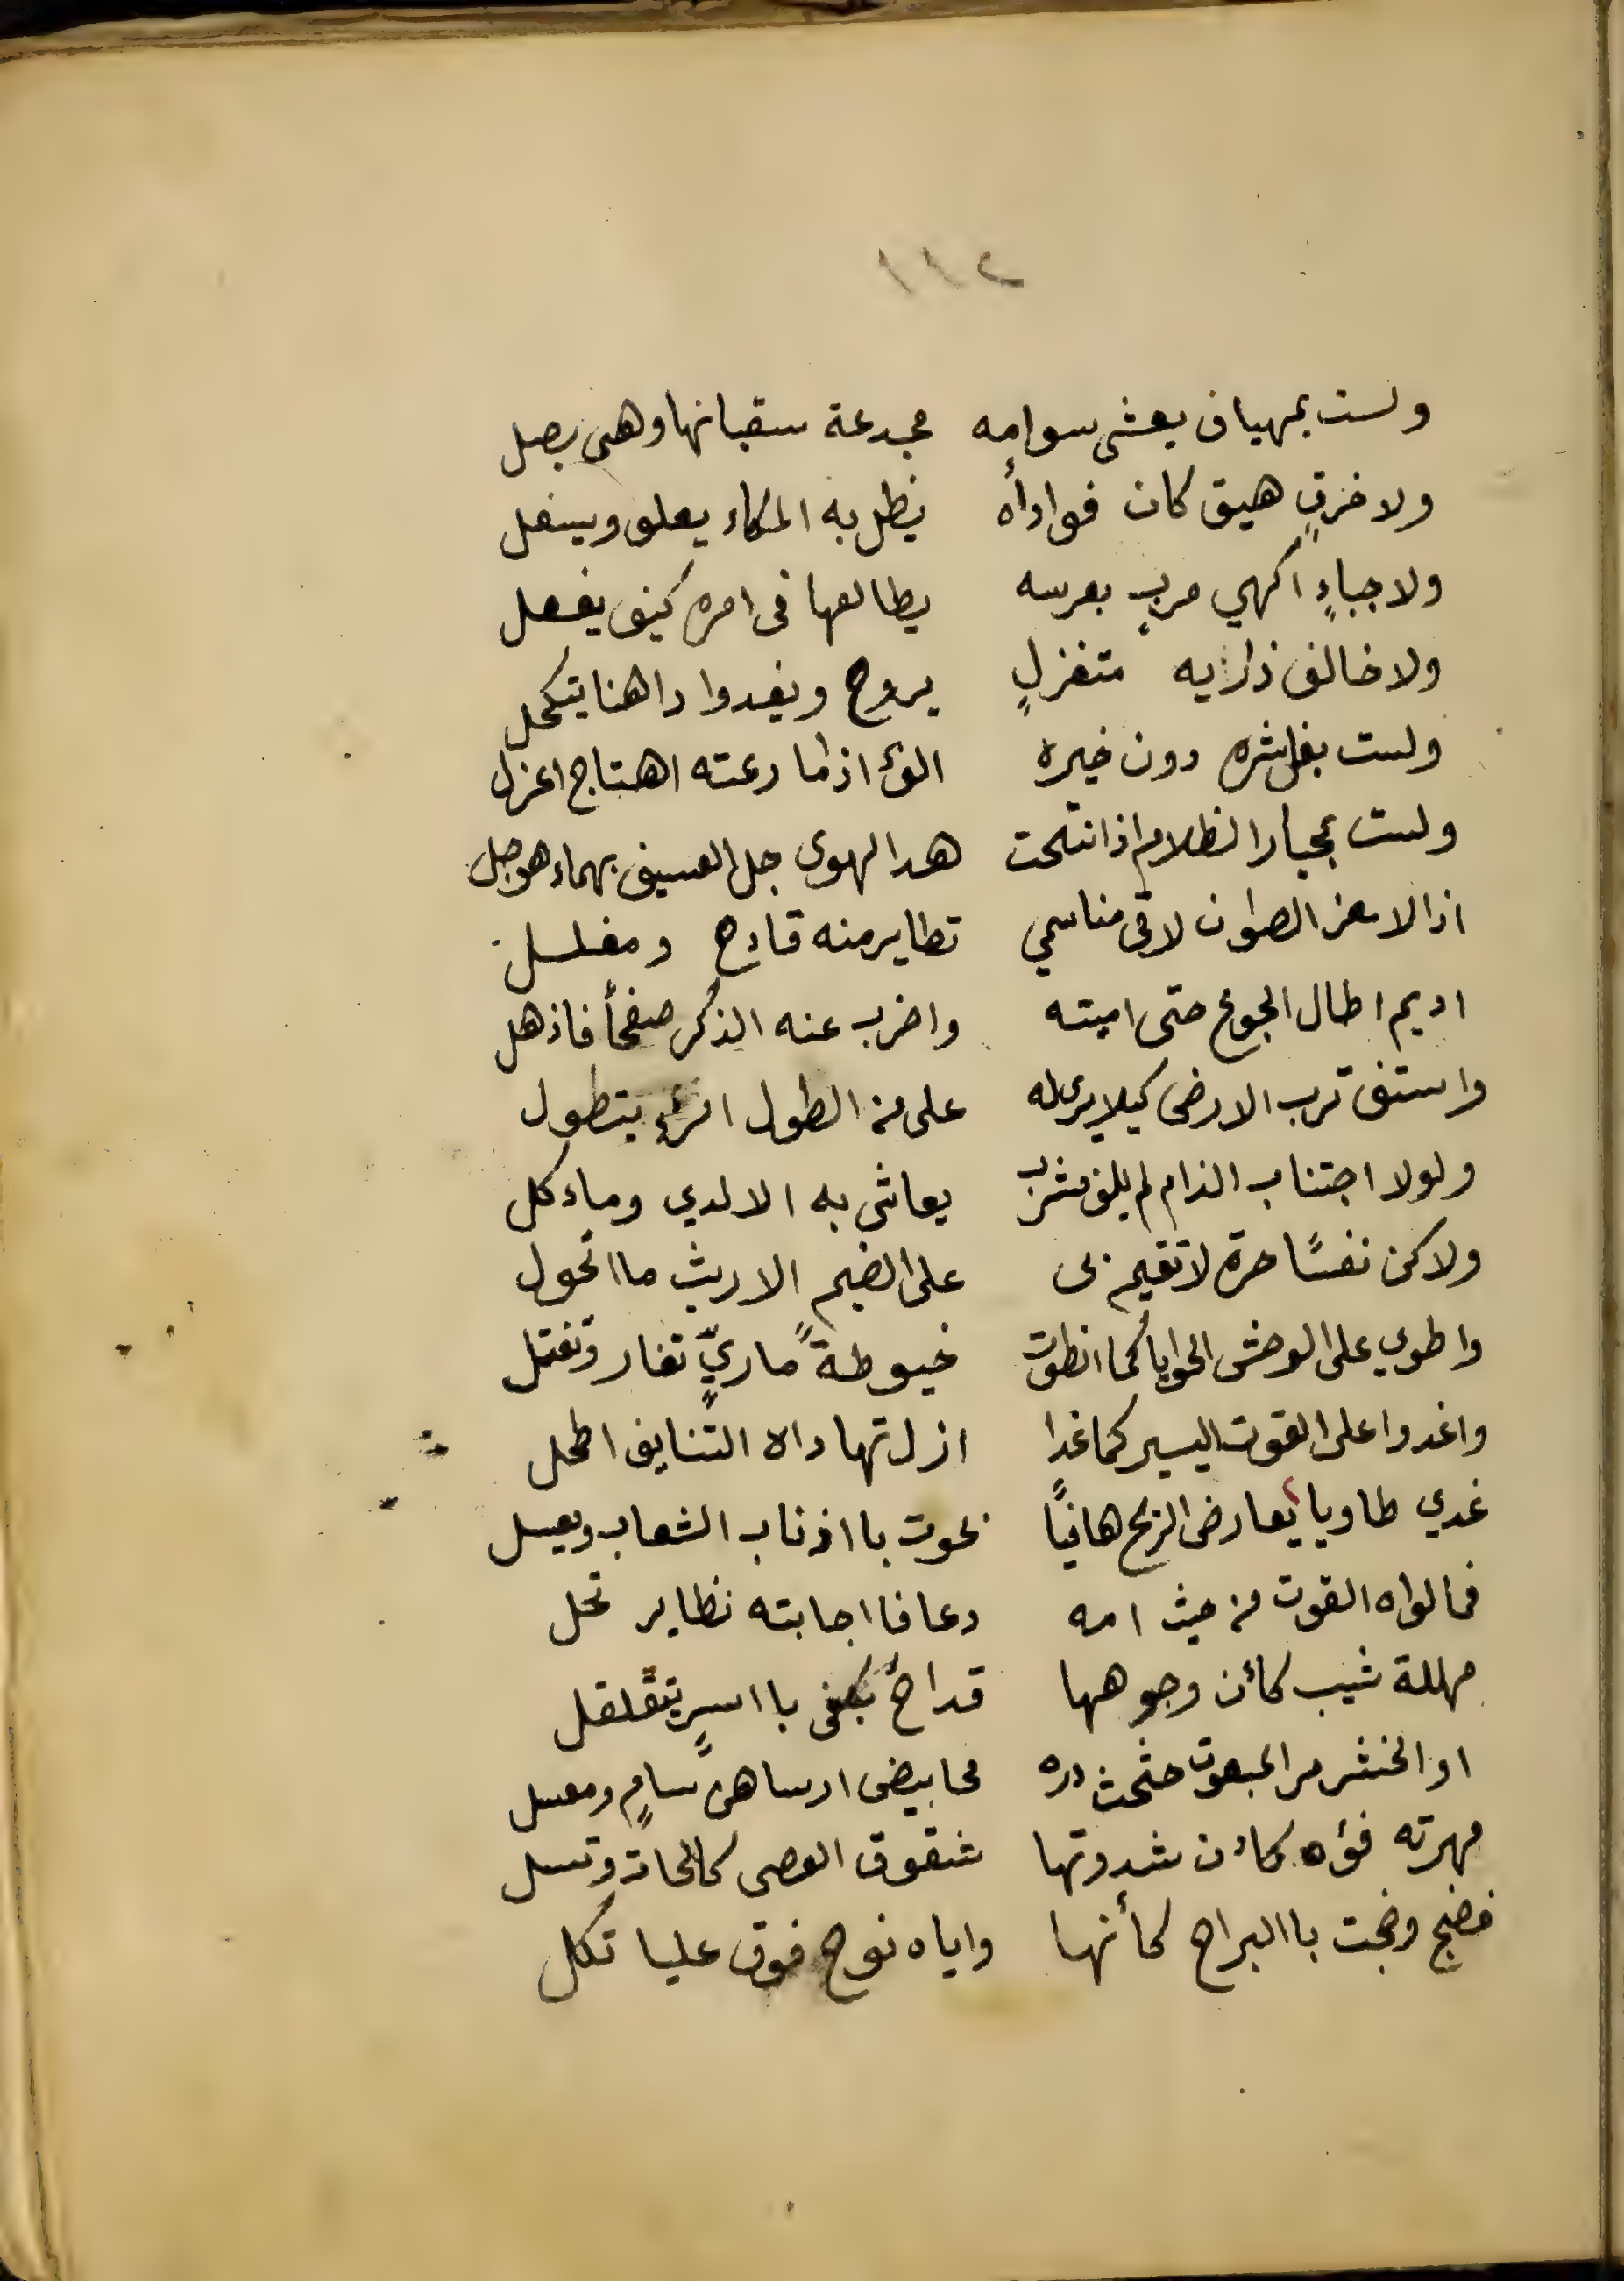 ١١٢
ولست بمهياف يعشى سوامه مجدعة سقبانها وهى بصل
ولا خرقٍ هيق كان فوادأه يظل به المكاء يعلو ويسفل
ولا جباءٍ اكهي مربٍ بعرسه يطالعها فى امره كيف يفعل
ولا خالف ذاريه متغزلٍ يروح ويغدوا داهنا يتكحل
ولست بعل شره دون خيره الف اذا ما رعته اهتاج اعزل
ولست بمحيار الظلام اذا انتحت هدا الهوى جل العسيف بهماء هوجل
اذا الامعز الصلوان لاقى مناسمي تطاير منه قادح ومفلل
اديم اطال الجوع حتى اميته واضرب عنه الذكر صفحأ فاذهل
واستف ترب الارض كيلا يرى له على من الطول امرء يتطول
ولولا اجتناب الذام لم يلف مشرب يعاش به الا لدي وماءكل
ولاكن نفسًا حرة لا تقيم بى على الضيم الا ريث ما اتحول
واطوي على الوخش الحوايا كما انطوت خيوطةً ماريٍّ تغار وتفتل
واغدوا على القوت اليسير كما غدا ازل تهاداه التنايف اطحل
غدي طاويا يعارض الريح هافيًا يخوت باا ذناب الشعاب ويعسل
فما لواه القوت من حيث امه دعا فااجابته نظاير نحل
مهللة شيب كأن وجوهها قداحٌ بكفى بااسرٍ يتقلقل
او الخشرم المبعوث حثحث دره محابيض ارساهن سامٍ ومعسل
مهرته فوه كاءن شدوقها شقوق العصى كالحات وتسل
فضج وضجت باالبراح كأنها واياه نوح فوق عليا تكل